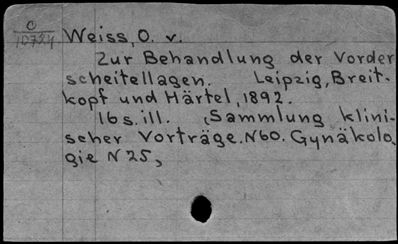 O
10724
Weiss, O. v.
Zur Behandlung der Vorder
scheitellagen. Leipzig, Breit-
kopf und Härtel, 1892.
16 s. ill. (Sammlung klini-
scher Vorträge. N 60. Gynäkolo
gie N 25,